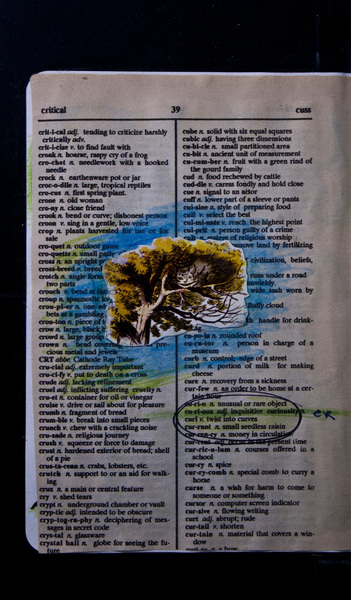 critical
39
cuss
crit-i-cal adj. tending to criticize harshly
critically adv.
crit-i-cize v. to find fault with
croak n. hoarse, raspy cry of a frog
cro-chet n. needlework with a hooked
needle
crock n. earthenware pot or jar
croc-o-dile n. large, tropical reptiles
cro-cus n. first spring plant.
crone n. old woman
cro-ny n. close friend
crook n. bend or curve; dishonest person
croon v. sing in a gentle, low voice
crop n. plants harvested for use or for
sale
cro-quet n. outdoor game
cro-quette n. small
cross n. an upright
cross-breed n.
crotch n. angle
two parts
crouch v. bend at
croup n. spasmodic
crou-pi-er n. one
bets at a gambling
crou-ton n. piece of
crow n. large, black
crowd n. large group
crown n. head
cious metal and jewels
CRT abbr. Cathode Ray Tube
cru-cial adj. extremely important
cru-ci-fy v. put to death on a cross
crude adj. lacking refinement
cruel adj. inflicting suffering cruelty n.
cru-et n. container for oil or vinegar
cruise v. drive or sail about for pleasure
crumb n. fragment of bread
crum-ble v. break into small pieces
crunch v. chew with a crackling noise
cru-sade n. religious journey
crush v. squeeze or force to damage
crust n. hardened exterior of bread; shell
of a pie
crus-ta-cean n. crabs, lobsters, etc.
crutch n. support to or as aid for walk-
ing
crux n. a main or central feature
cry v. shed tears
crypt n. underground chamber or vault
cryp-tic adj. intended to be obscure
cryp-tog-ra-phy n. deciphering of mes-
sages in secret code
crys-tal n. glassware
crystal ball n. globe for seeing the fu-
ture
cube n. solid with six equal squares
cubic adj. having three dimensions
cu-bi-cle n. small partitioned area
cu-bit n. ancient unit of measurement
cu-cum-ber n. fruit with a green rind of
the gourd family
cud n. food rechewed by cattle
cud-dle v. caress fondly and hold close
cue n. signal to an actor
cuff n. lower part of a sleeve or pants
cui-sine n. style of preparing food
cull v. select the best
cul-mi-nate v. reach the highest point
cul-prit n. person guilty of a crime
cult n. system of religious worship
improve land by fertilizing
civilization, beliefs,
runs under a road
wide sash worn by
cloud
handle for drink-
cu-po-la n. rounded roof
cu-ra-tor n. person in charge of a
museum
curb n. control; edge of a street
curd n. portion of milk for making
cheese
cure n. recovery from a sickness
cur-few n. an order to be home at a cer-
tain hour
cu-rio n. unusual or rare object
cu-ri-ous adj. inquisitive curiousity n.
er
curl v. twist into curves
cur-rant n. small seedless raisin
cur-ren-cy n. money in circulation
cur-rent adj. the present time
cur-ric-u-lum n. courses offered in a
school
cur-ry n. spice
cur-ry-comb n. special comb to curry a
horse
curse n. a wish for harm to come to
someone or something
cursor n. computer screen indicator
cur-sive n. flowing writing
curt adj. abrupt; rude
cur-tail v. shorten
cur-tain n. material that covers a win-
dow